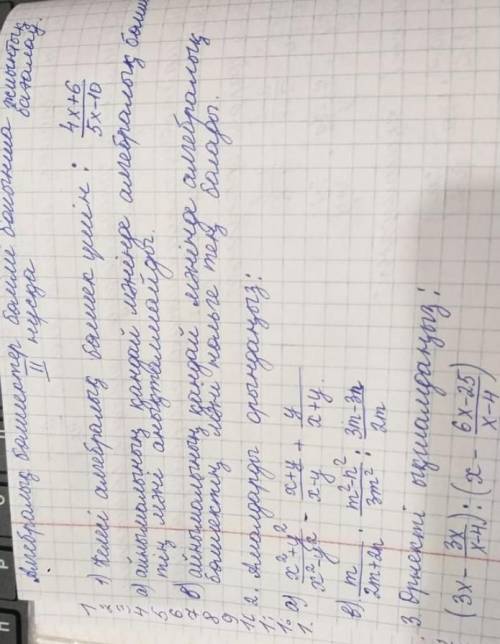 Алгебралық бөлшектер бөлімі бойынша жиынтық
бағалау.
II нұсқа
1) Келесі алгебралық бөлшек үшін: \frac{4x+6}{5x-10}
а) айнымалының қандай мәнінде алгебралық бөлшек
тің мәні анықталмайды.
в) айнымалының қандай мәнінде алгебралық
бөлшектің мәні нөльге тең болады.
2. Амалдарды орындаңыз:
а) \frac{x^2+y^2}{x^2-y^2} - \frac{x+y}{x-y} + \frac{y}{x+y}
в) \frac{m}{2m+2n} · \frac{m^2-n^2}{3m^2} : \frac{3m-3n}{2m}
3. Өрнекті ықшамдаңыз:
(3x - \frac{3x}{x-4}) : (x - \frac{6x-25}{x-4})